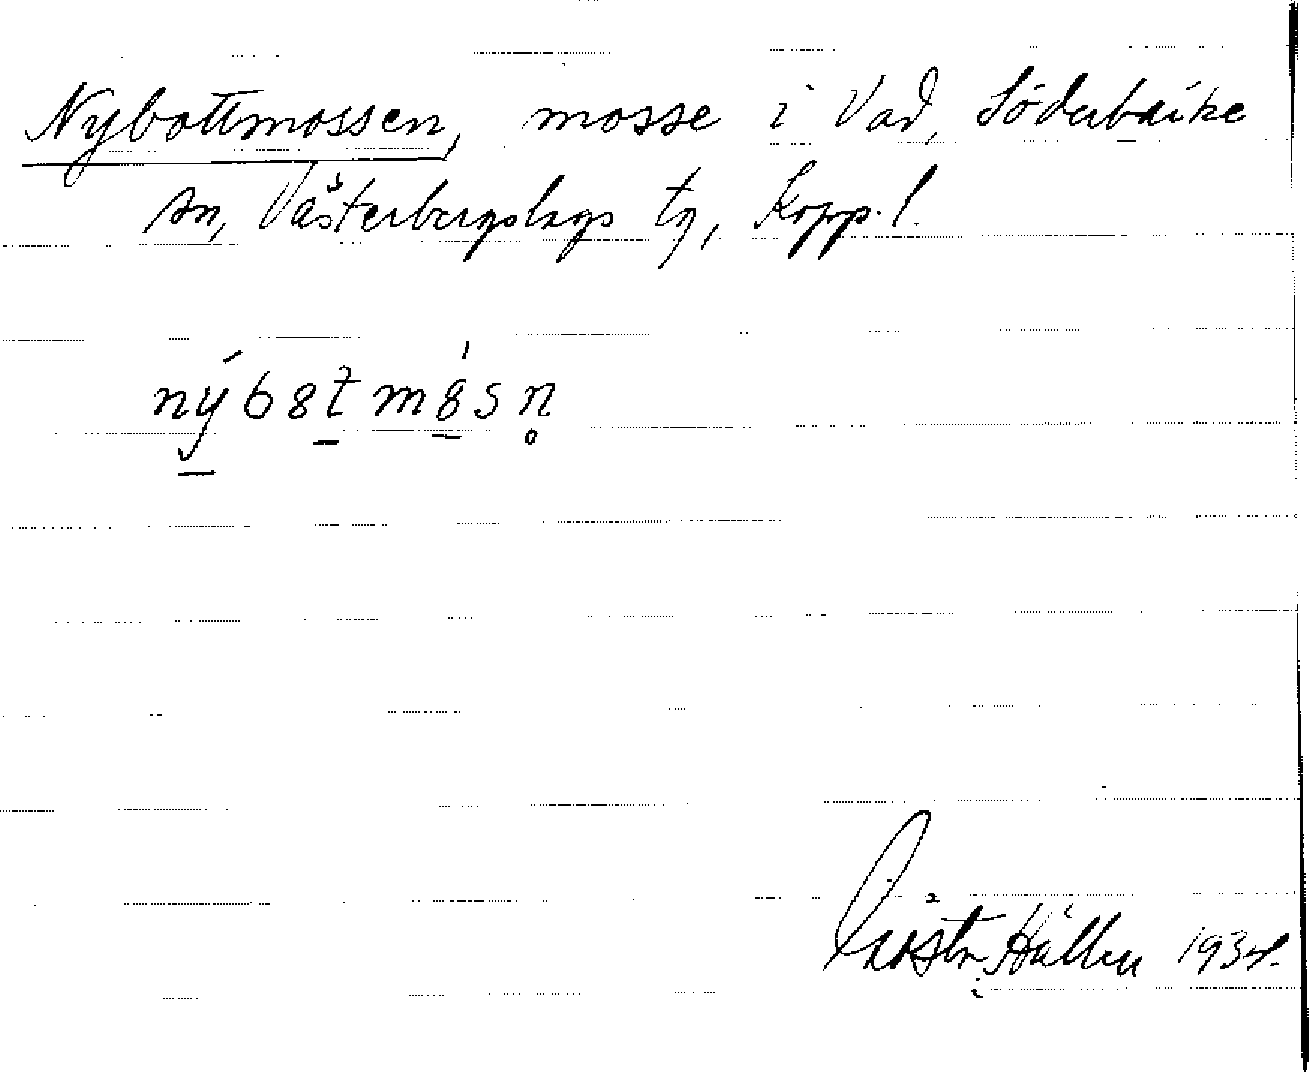 Nybottmossen, mosse i Vad, Söderbärke
sn, Västerbergslags tg, Kopp. l.
nýb8tm8́sn̥
Hållen 1934.